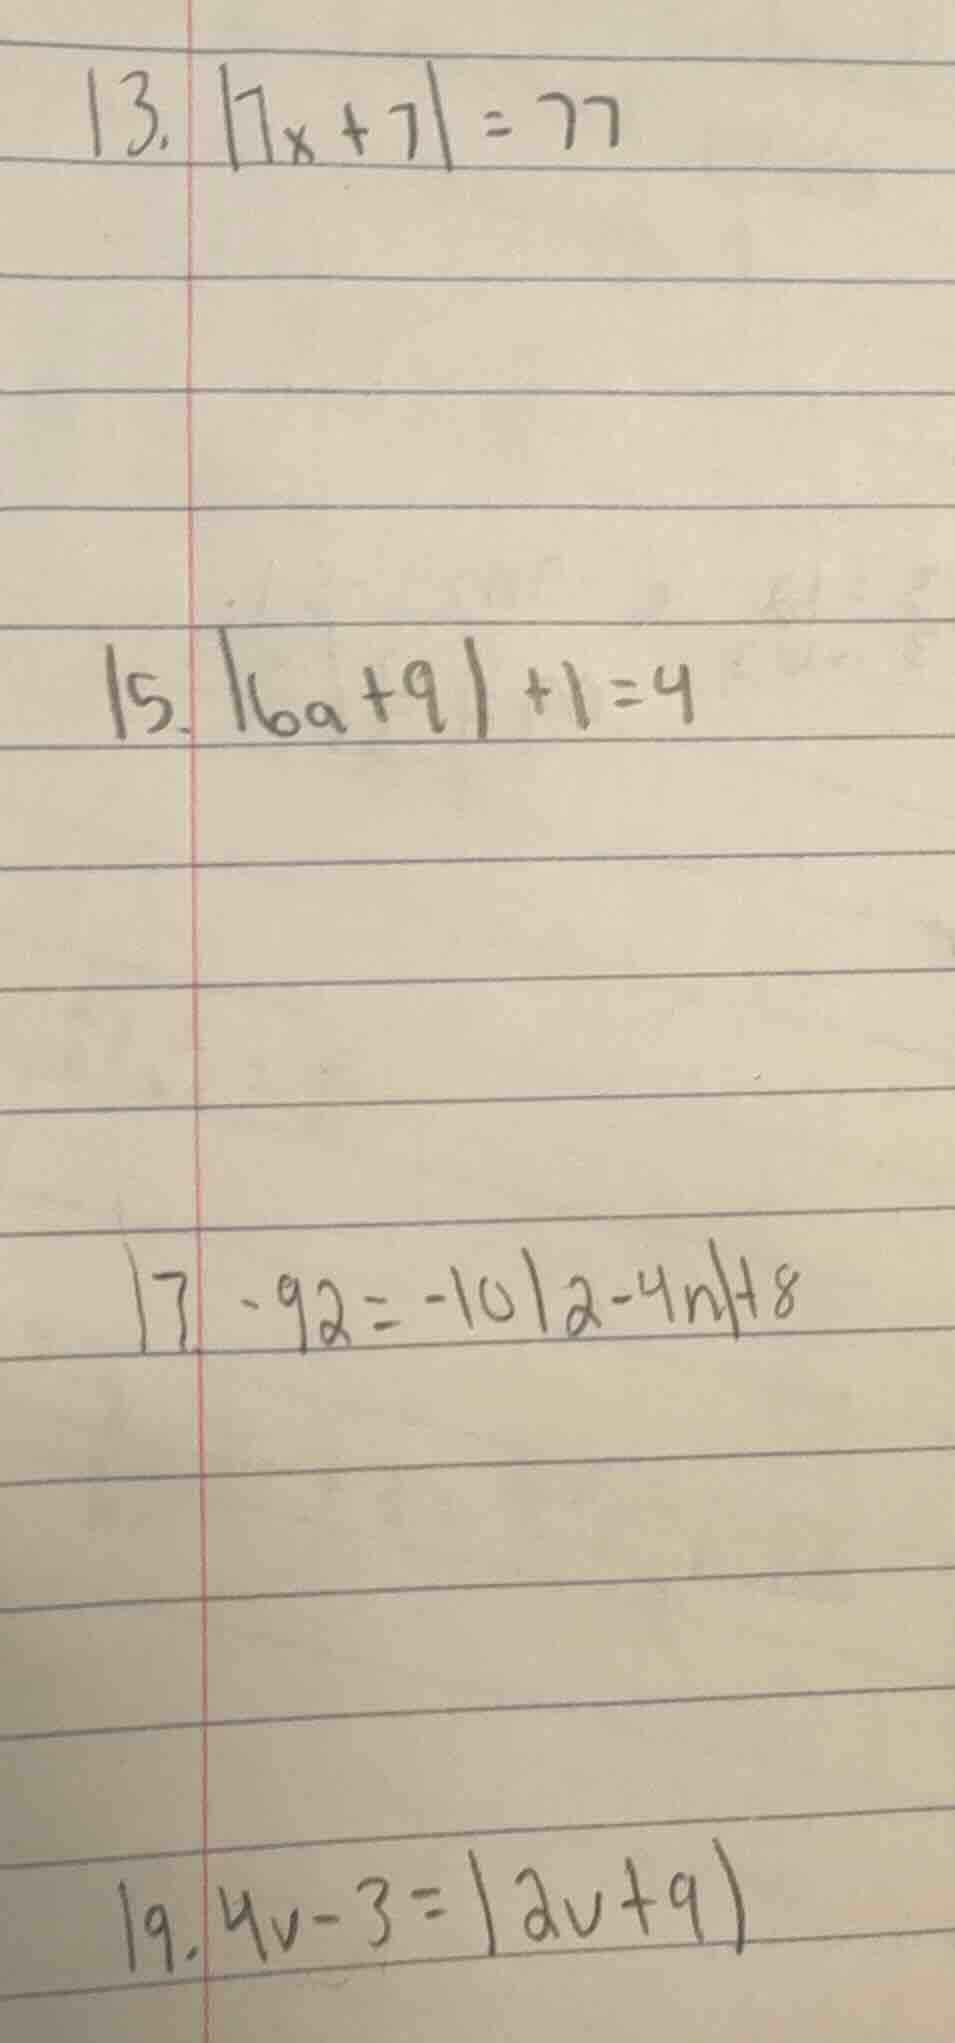 13. |7x+7| = 77
15. |6a+9| +1=4
17. -92=-10|2-4n|+8
19. 4v-3=|2v+9|